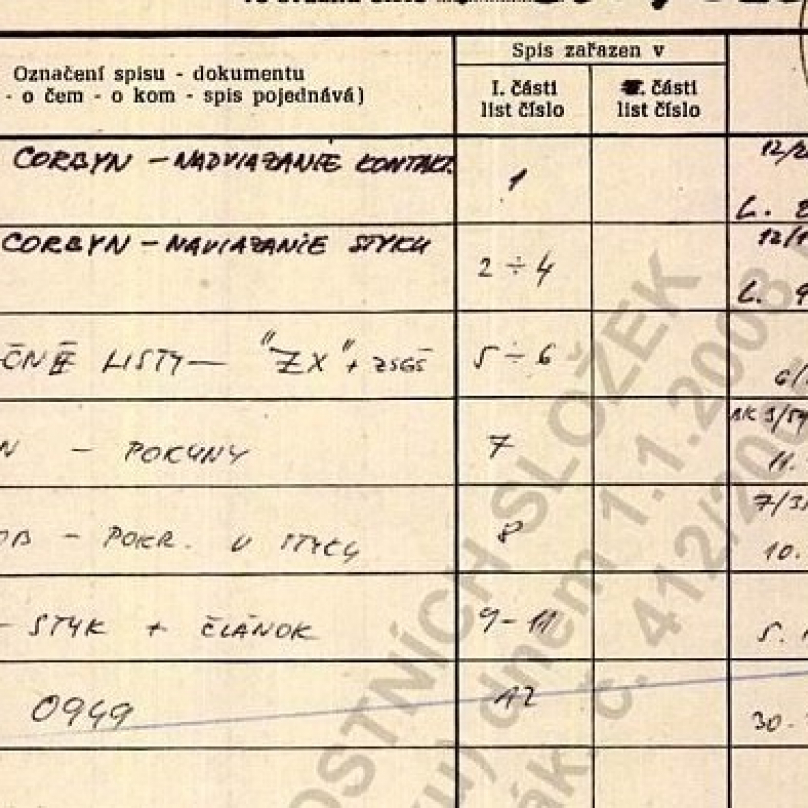 Spis zařazen v
Označení spisu - dokumentu
- o čem - o kom - spis pojednává)
I. části
list číslo
části
list číslo
CORBYN - NADVIAZANIE KONTAKT.
1
12/2
L.
CORBYN - NAVIAZANIE STYKU
2 ÷ 4
12/1
L. 9
ČNÉ LISTY — "ZX" + ZSGŠ
5 ÷ 6
6/
N - POKYNY
7
11.
- POKR. V STYKU
8
7/3
10.
- STYK + ČLÁNOK
9 - 11
5.
0949
12
30.
OSTNÍCH SLOŽEK
dnem 1.1.2008
č. 412/200